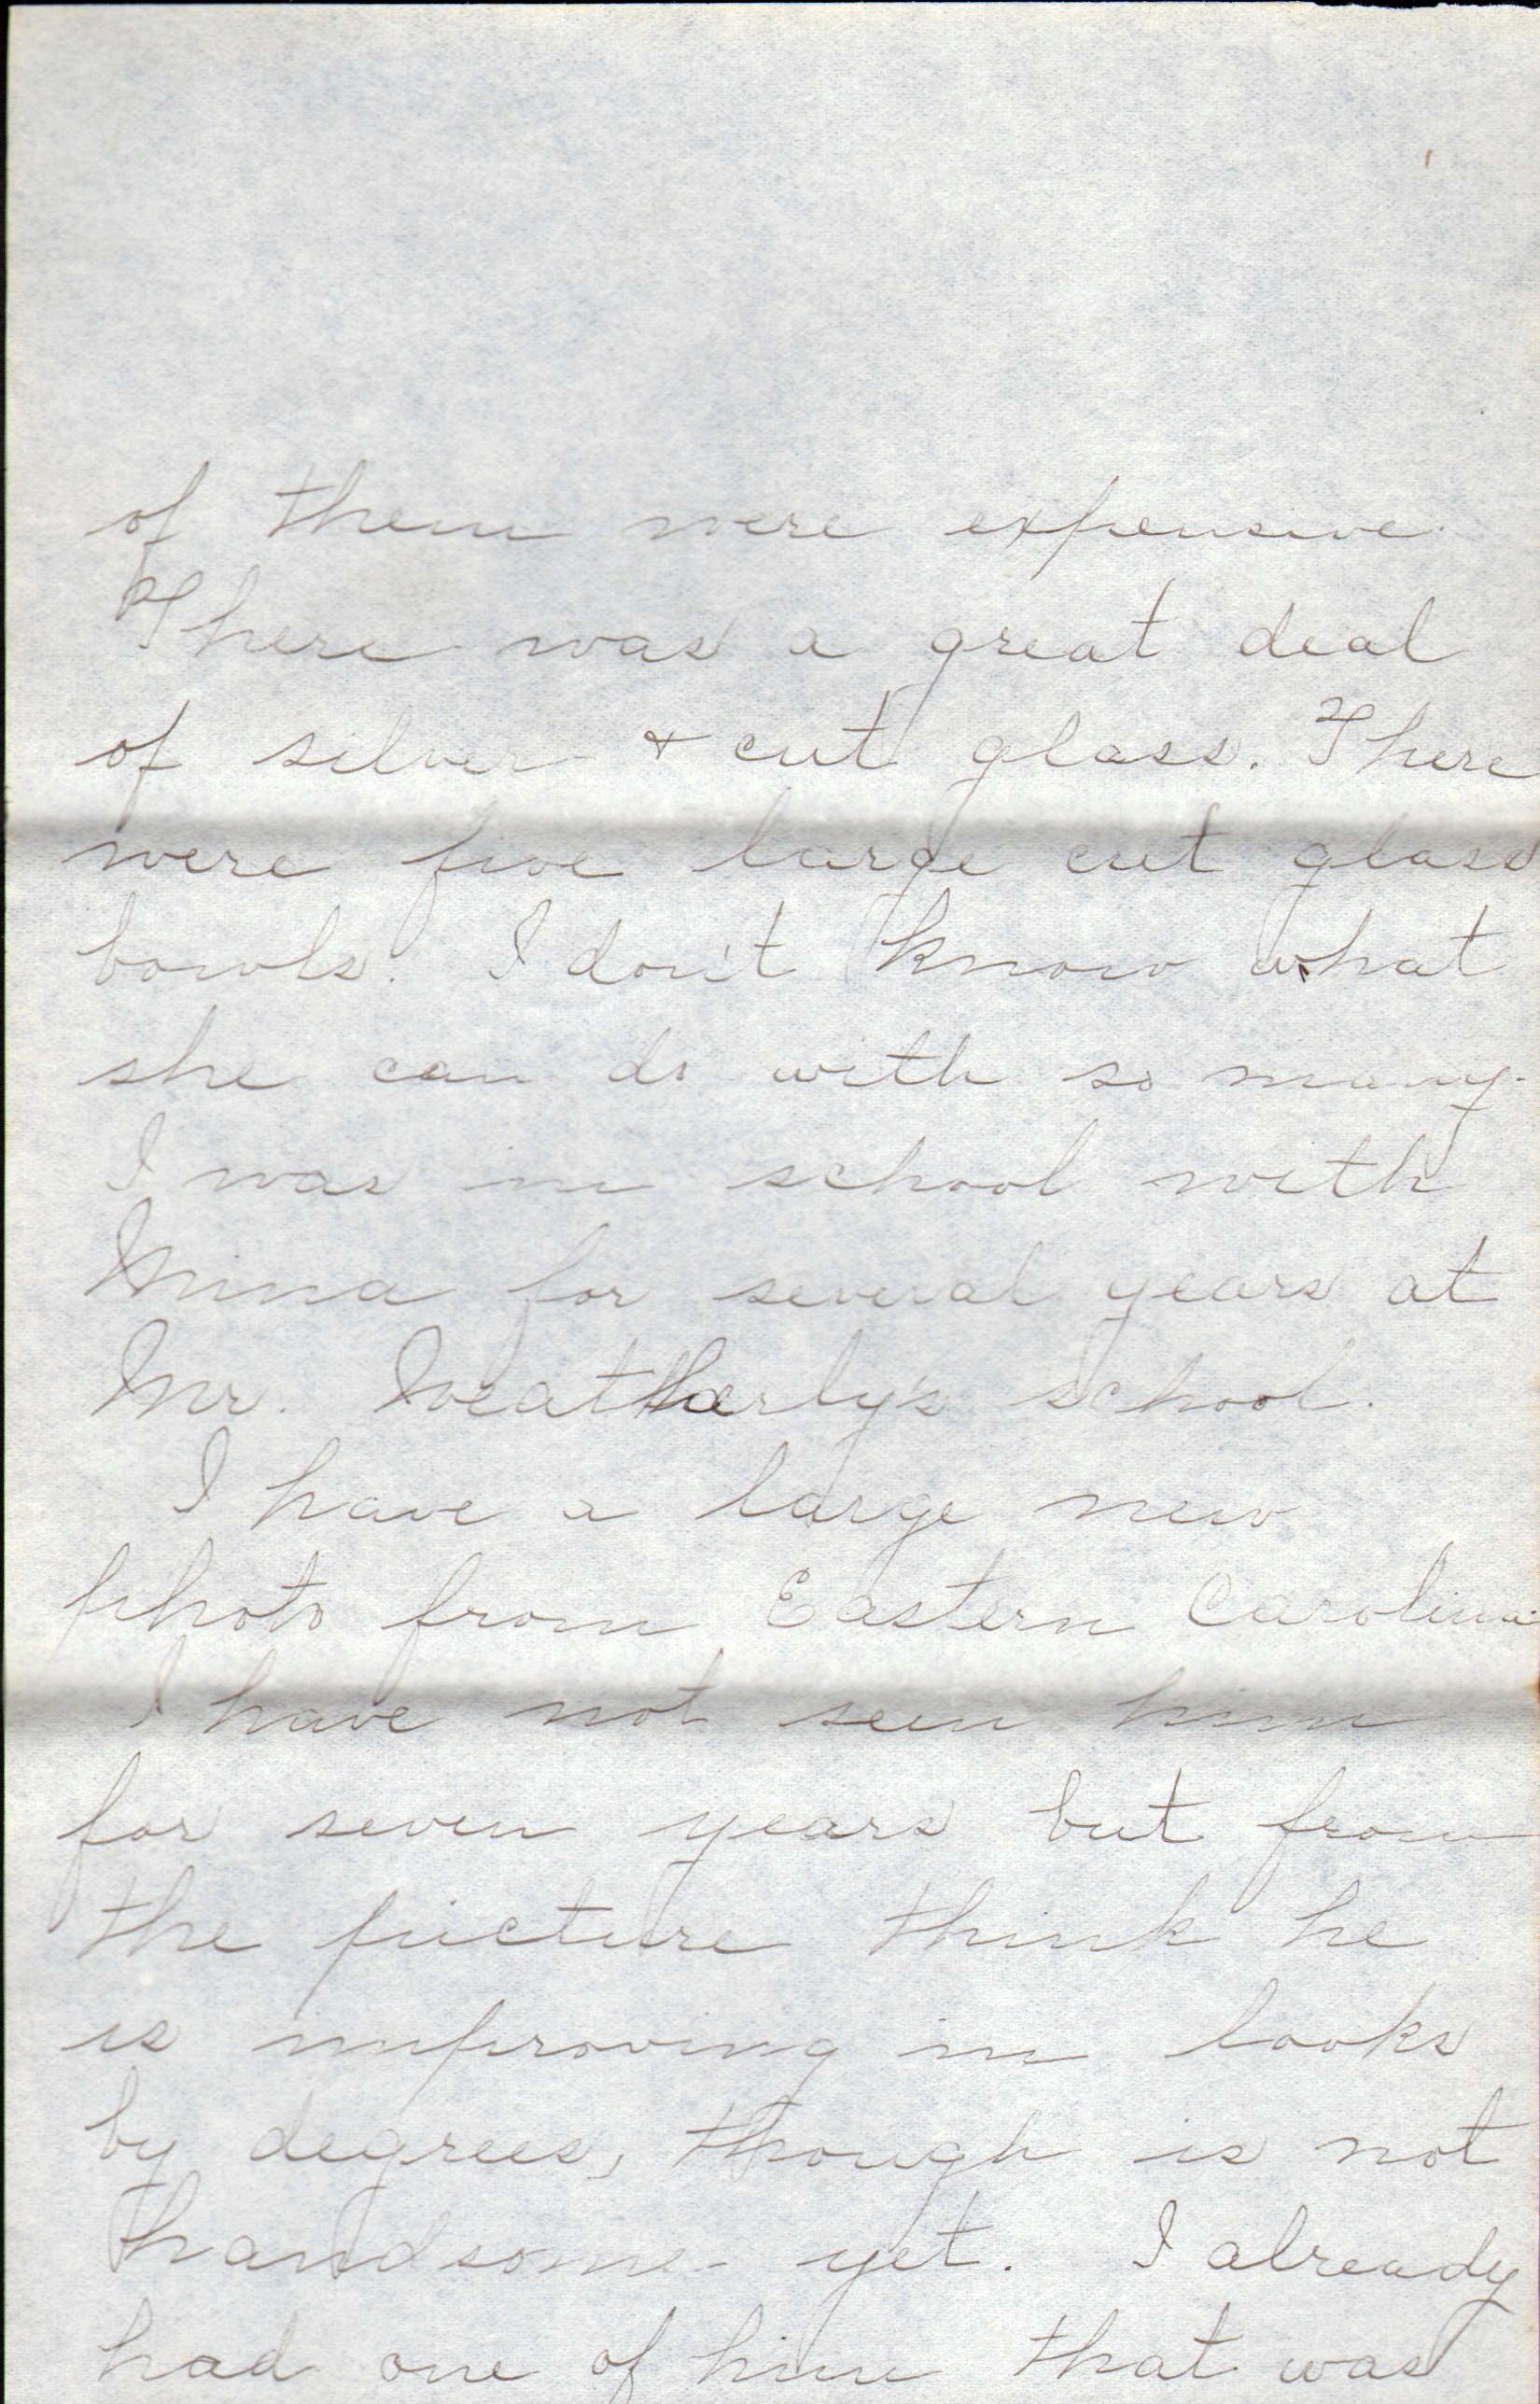 of them were expensive.
There was a great deal
of silver & cut glass. There
were five large cut glass
bowls. I don't know what
she can do with so many.
I was in school with
Mina for several years at
Mr. Weatherly's school.
I have a large new
photo from Eastern Carolina.
I have not seen him
for seven years but from
the picture think he
is improving in looks
by degrees, though is not
handsome yet. I already
had one of him that was